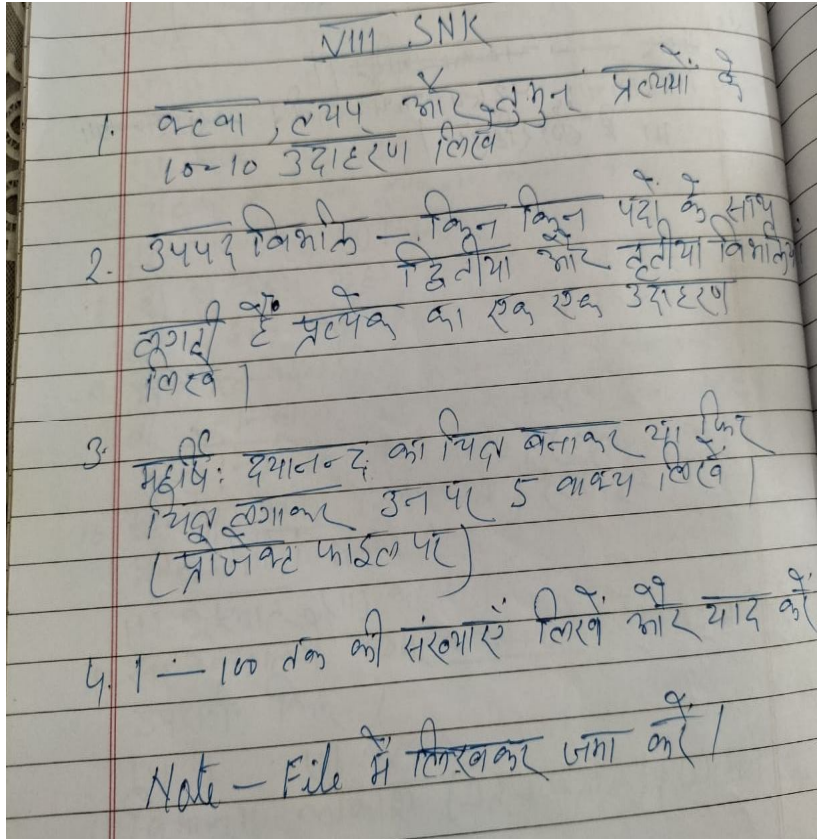 VIII SNK
1. क्त्वा, ल्यप् और तुमुन् प्रत्ययों के
10-10 उदाहरण लिखें
2. उपपद विभक्ति - किन किन पदों के साथ
द्वितीया और तृतीया विभक्तियां
लगती हैं प्रत्येक का एक एक उदाहरण
लिखें ।
3. महर्षि: दयानन्द का चित्र बनाकर या फिर
चित्र लगाकर उन पर 5 वाक्य लिखें ।
(प्रोजेक्ट फाइल पर)
4. 1 - 100 तक की संख्याएँ लिखें और याद करें
Note - File में लिखकर जमा करें ।